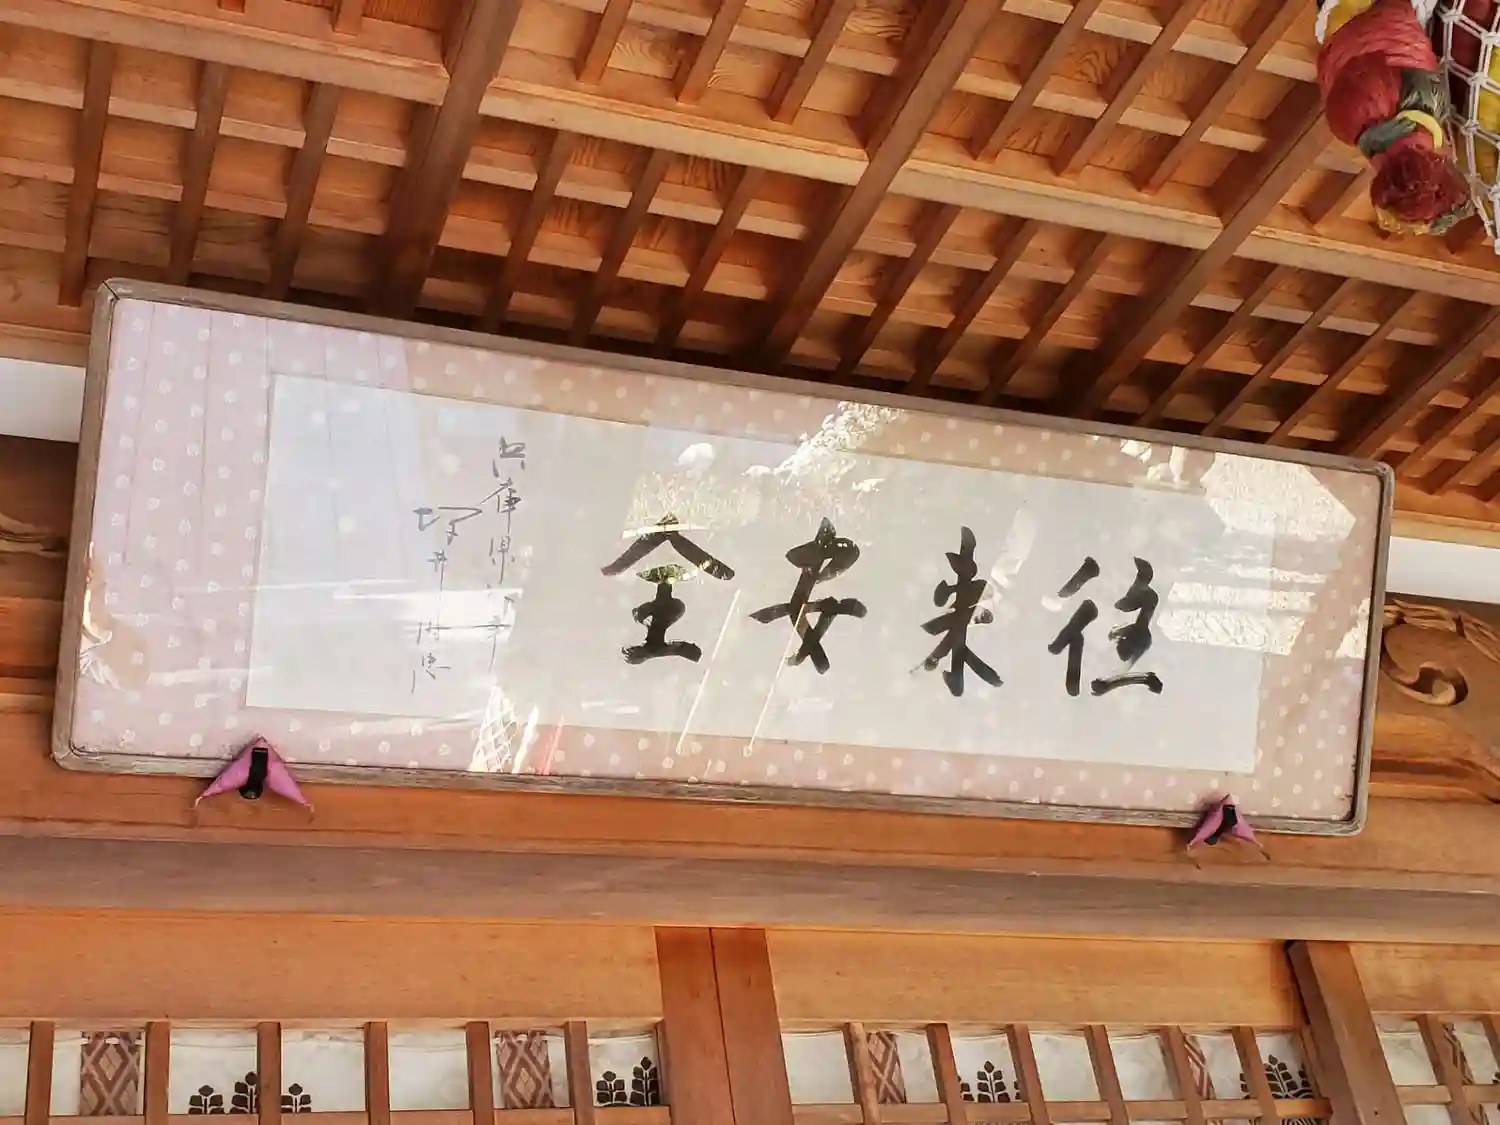 往来安全
兵庫県知事
坂井時忠